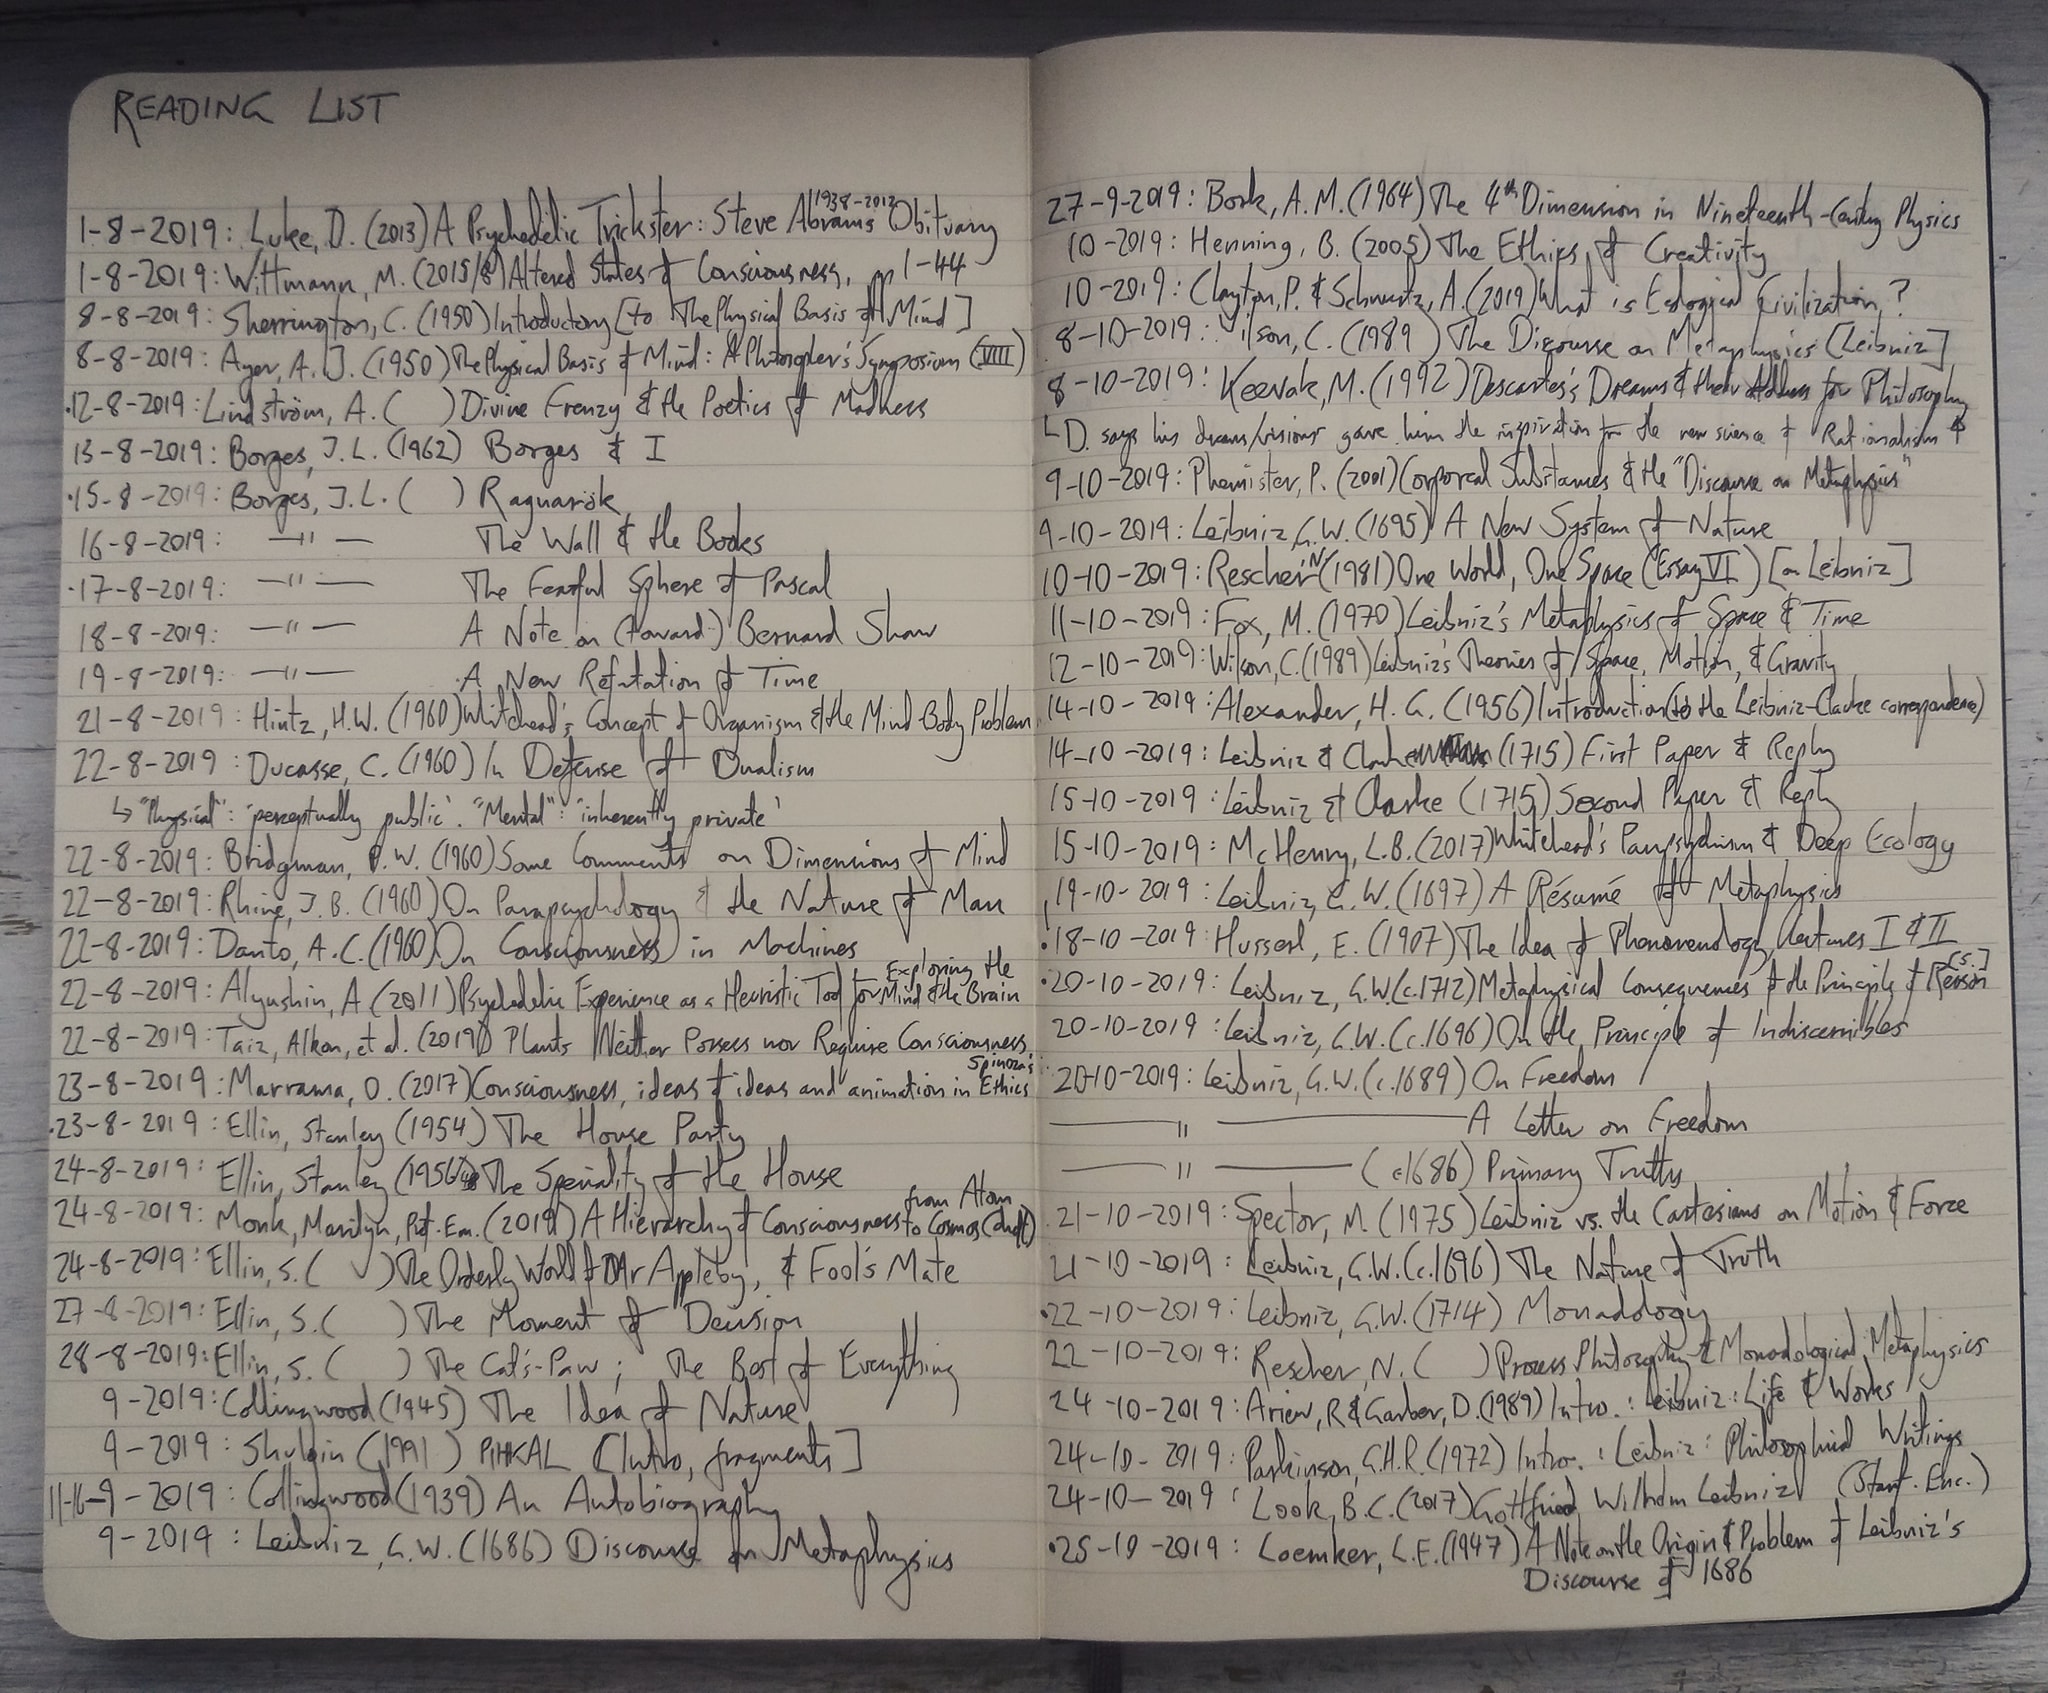 READING LIST
1-8-2019: Luke, D. (2013) A Psychedelic Trickster: Steve Abrams 1938-2012 Obituary
1-8-2019: Wittmann, M. (2015/8) Altered States of Consciousness, pp 1-44
8-8-2019: Sherrington, C. (1950) Introductory [to The Physical Basis of Mind]
8-8-2019: Ayer, A. J. (1950) The Physical Basis of Mind: A Philosopher's Symposium (VIII)
·12-8-2019: Lindström, A. ( ) Divine Frenzy & the Poetics of Madness
13-8-2019: Borges, J.L. (1962) Borges & I
·15-8-2019: Borges, J.L. ( ) Ragnarök
16-8-2019: —"— The Wall & the Books
·17-8-2019: —"— The Fearful Sphere of Pascal
18-8-2019: —"— A Note on (toward) Bernard Shaw
19-8-2019: —"— A New Refutation of Time
21-8-2019: Hintz, H.W. (1960) Whitehead's Concept of Organism & the Mind-Body Problem
22-8-2019: Ducasse, C. (1960) In Defense of Dualism
↳ "Physical": 'perceptually public'. "Mental": 'inherently private'
22-8-2019: Bridgman, P.W. (1960) Some Comments on Dimensions of Mind
22-8-2019: Rhine, J.B. (1960) On Parapsychology & the Nature of Man
22-8-2019: Danto, A.C. (1960) On Consciousness in Machines
22-8-2019: Alyushin, A (2011) Psychedelic Experience as a Heuristic Tool for Exploring the Mind & the Brain
22-8-2019: Taiz, Alkon, et al. (2019) Plants Neither Possess nor Require Consciousness
23-8-2019: Marrama, O. (2017) Consciousness, ideas of ideas and animation in Spinoza's Ethics
·23-8-2019: Ellin, Stanley (1954) The House Party
24-8-2019: Ellin, Stanley (1956) The Speciality of the House
24-8-2019: Monk, Marilyn, Prof. Em. (2019) A Hierarchy of Consciousness from Atom to Cosmos (draft)
24-8-2019: Ellin, S. ( ) The Orderly World of Mr Appleby, & Fool's Mate
27-8-2019: Ellin, S. ( ) The Moment of Decision
28-8-2019: Ellin, S. ( ) The Cat's-Paw; The Best of Everything
9-2019: Collingwood (1945) The Idea of Nature
9-2019: Shulgin (1991) PIHKAL [Intro, fragments]
11-16-9-2019: Collingwood (1939) An Autobiography
9-2019: Leibniz, G.W. (1686) Discourse on Metaphysics
27-9-2019: Bork, A.M. (1964) The 4th Dimension in Nineteenth-Century Physics
10-2019: Henning, B. (2005) The Ethics of Creativity
10-2019: Clayton, P. & Schwartz, A. (2019) What is Ecological Civilization?
8-10-2019: Wilson, C. (1989) The Discourse on Metaphysics [Leibniz]
8-10-2019: Keevak, M. (1992) Descartes's Dreams & their Address for Philosophy
↳ D. says his dreams/visions gave him the inspiration for the new science of Rationalism
9-10-2019: Phemister, P. (2001) Corporeal Substances & the "Discourse on Metaphysics"
9-10-2019: Leibniz, G.W. (1695) A New System of Nature
10-10-2019: Rescher, N (1981) One World, One Space (Essay VI) [on Leibniz]
11-10-2019: Fox, M. (1970) Leibniz's Metaphysics of Space & Time
12-10-2019: Wilson, C. (1989) Leibniz's Theories of Space, Motion, & Gravity
14-10-2019: Alexander, H.G. (1956) Introduction (to the Leibniz-Clarke correspondence)
14-10-2019: Leibniz & Clarke (1715) First Paper & Reply
15-10-2019: Leibniz & Clarke (1715) Second Paper & Reply
15-10-2019: McHenry, L.B. (2017) Whitehead's Panpsychism & Deep Ecology
19-10-2019: Leibniz, G.W. (1697) A Résumé of Metaphysics
·18-10-2019: Husserl, E. (1907) The Idea of Phenomenology, Lectures I & II
·20-10-2019: Leibniz, G.W. (c.1712) Metaphysical Consequences of the Principle of [S.] Reason
20-10-2019: Leibniz, G.W. (c.1696) On the Principle of Indiscernibles
20-10-2019: Leibniz, G.W. (c.1689) On Freedom
—"— A Letter on Freedom
—"— (c1686) Primary Truths
21-10-2019: Spector, M. (1975) Leibniz vs. the Cartesians on Motion & Force
21-10-2019: Leibniz, G.W. (c.1696) The Nature of Truth
·22-10-2019: Leibniz, G.W. (1714) Monadology
22-10-2019: Rescher, N. ( ) Process Philosophy & Monadological Metaphysics
24-10-2019: Ariew, R & Garber, D. (1989) Intro.: Leibniz: Life & Works
24-10-2019: Parkinson, G.H.R. (1972) Intro.: Leibniz: Philosophical Writings
24-10-2019: Look, B.C. (2017) Gottfried Wilhelm Leibniz (Stanf. Enc.)
·25-10-2019: Loemker, L.E. (1947) A Note on the Origin & Problem of Leibniz's
Discourse of 1686